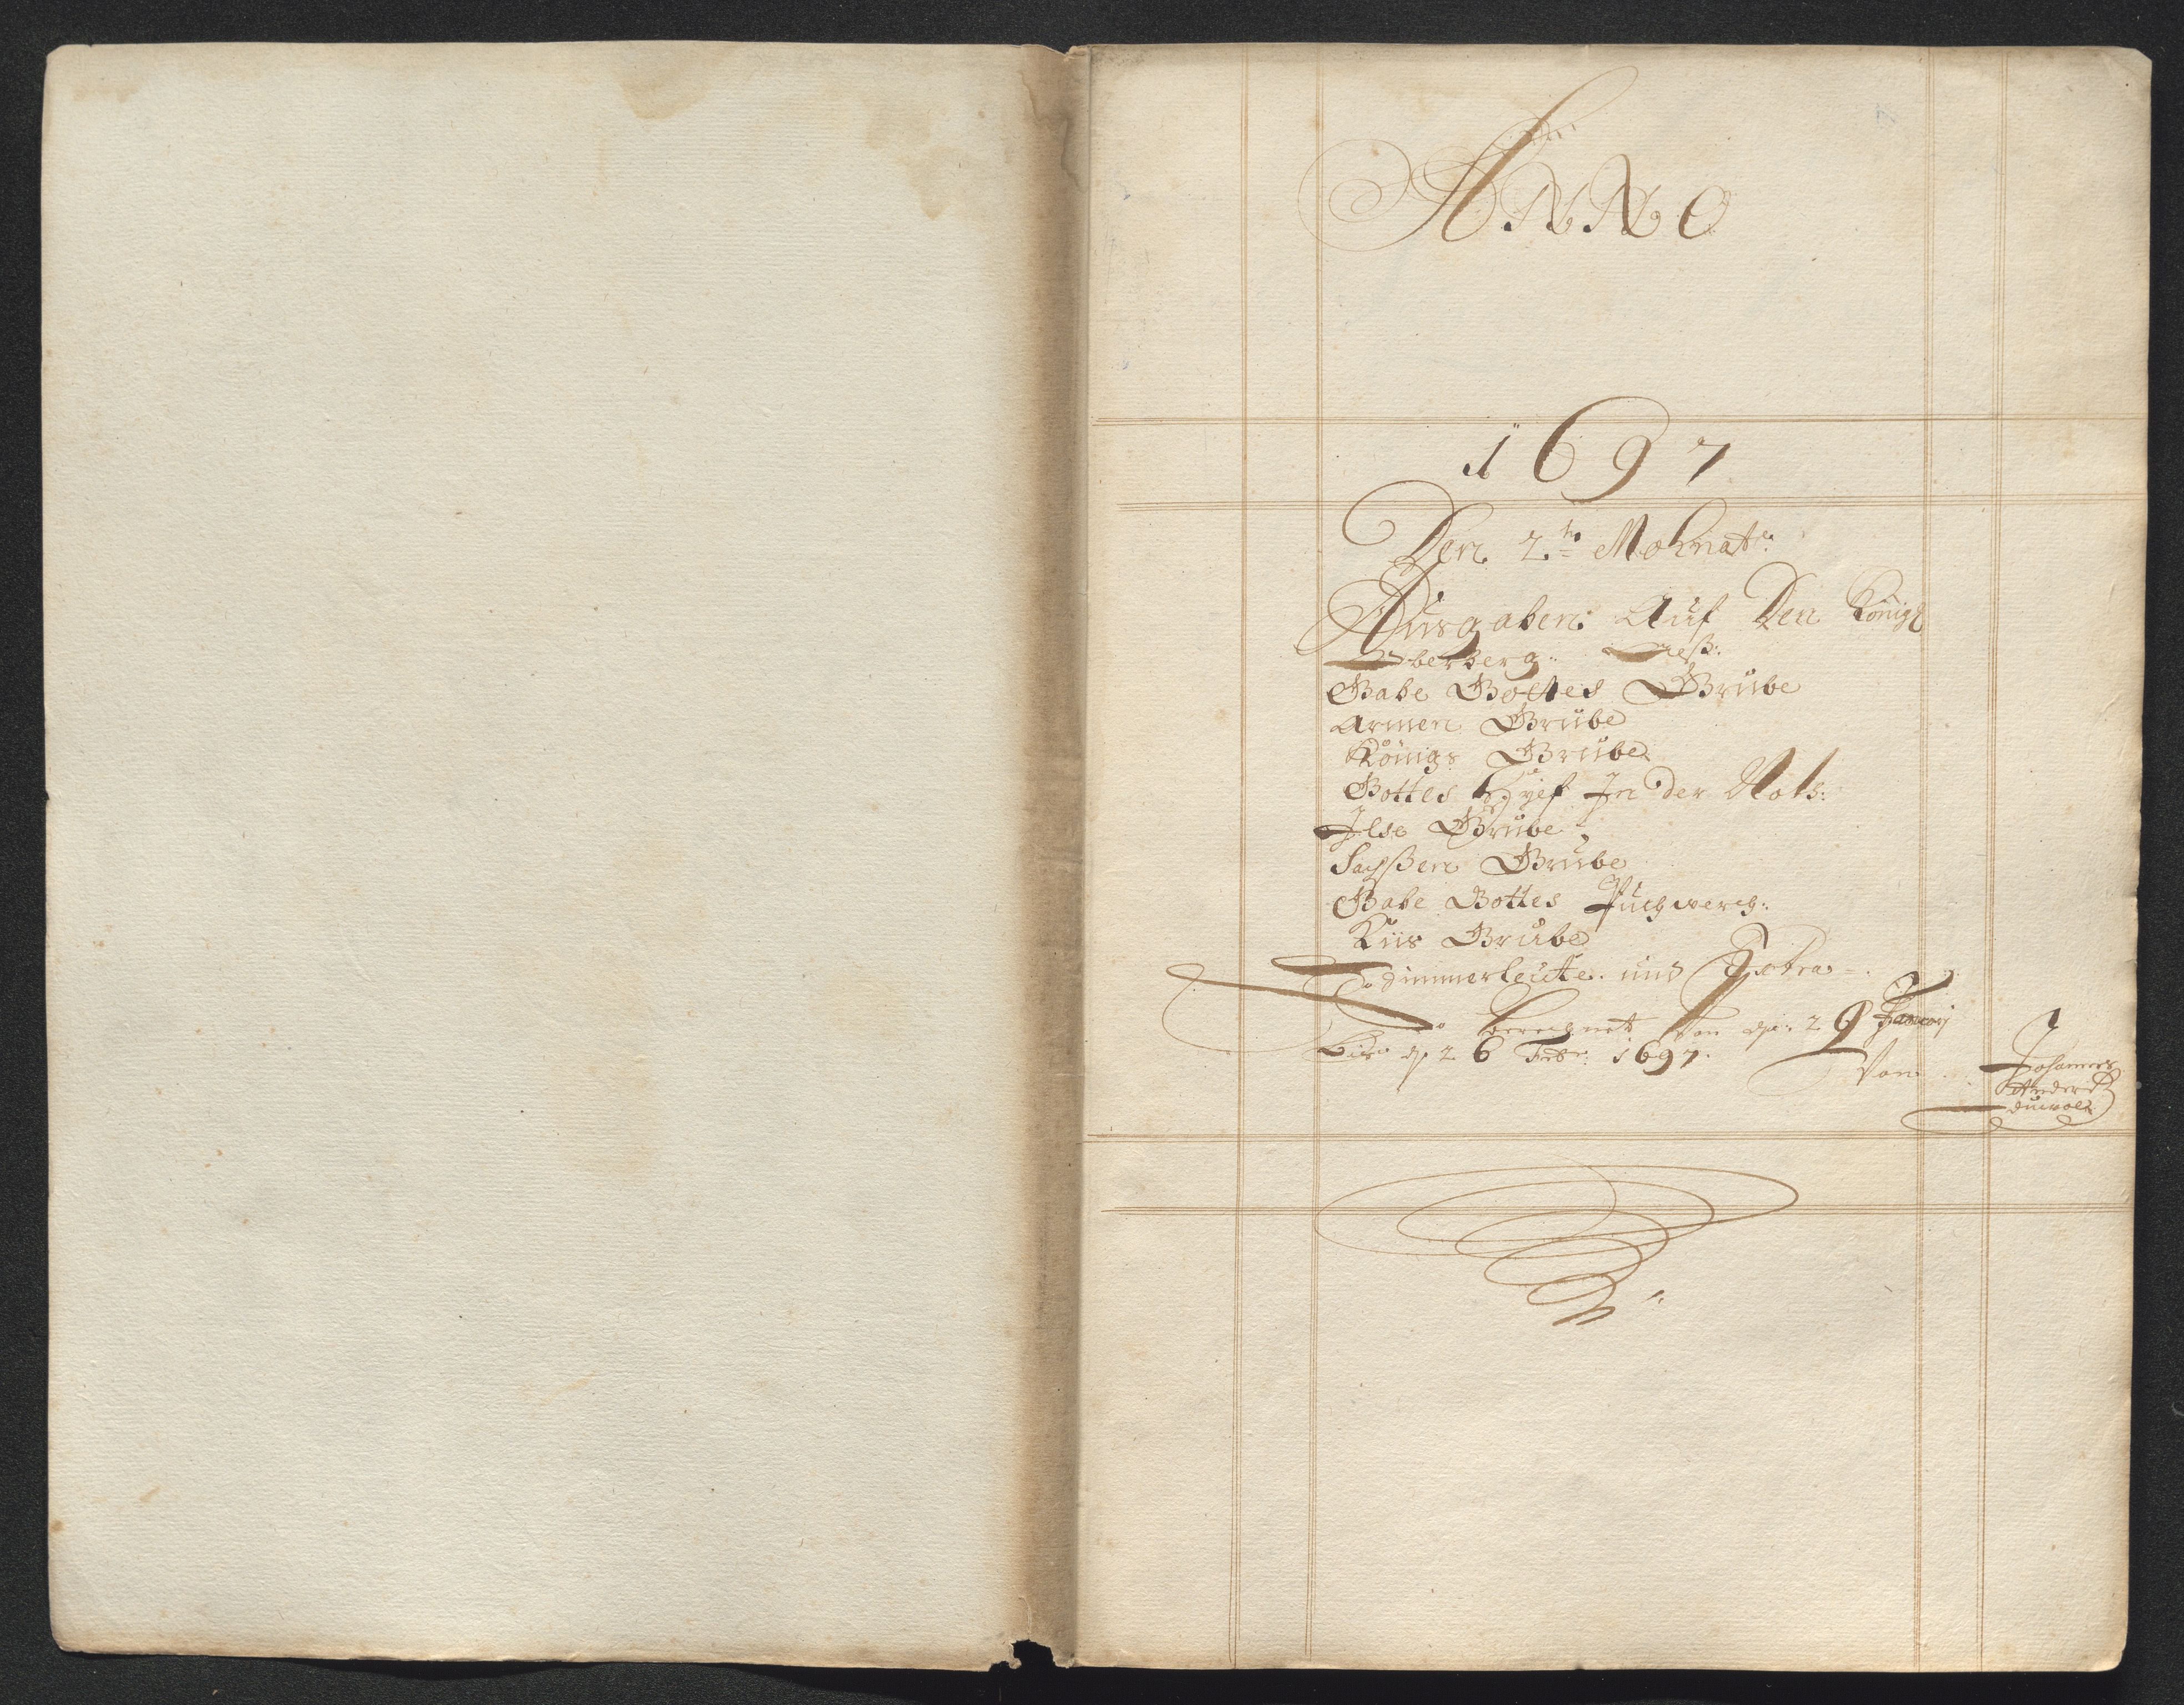 Anno
1697
Den 2te Mohnat:
Ausgaben: Auf Den Königl
Oberberg:
Gabe Gottes Grube
Armen Grube
Königs Grube
Gottes Hülf In der Noth:
Ilse Grube
Sachßen Grube
Gabe Gottes Puchwerch:
Kiis Grube
Zimmerleute. und
berechnett Von d. 29 Januarj
Biß d 26 Febr: 1697.
Von Johannes